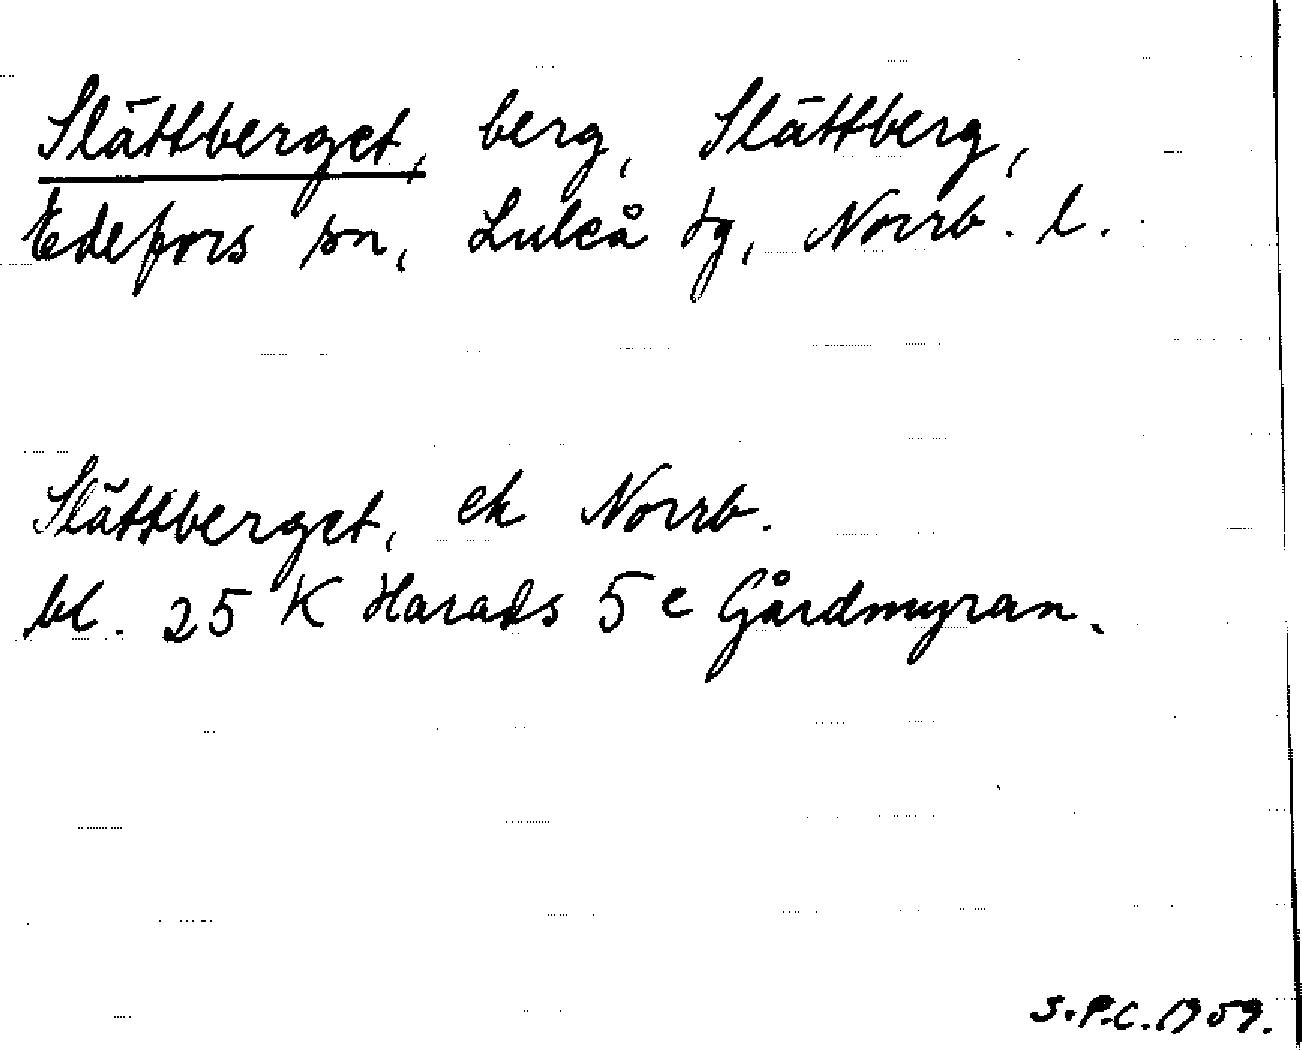 Slättberget, berg, Slättberg,
Edefors sn, Luleå tg, Norrb. l.
Slättberget, ek Norrb.
bl. 25 K Harads 5 c Gårdmyran.
S.P.C. 1959.